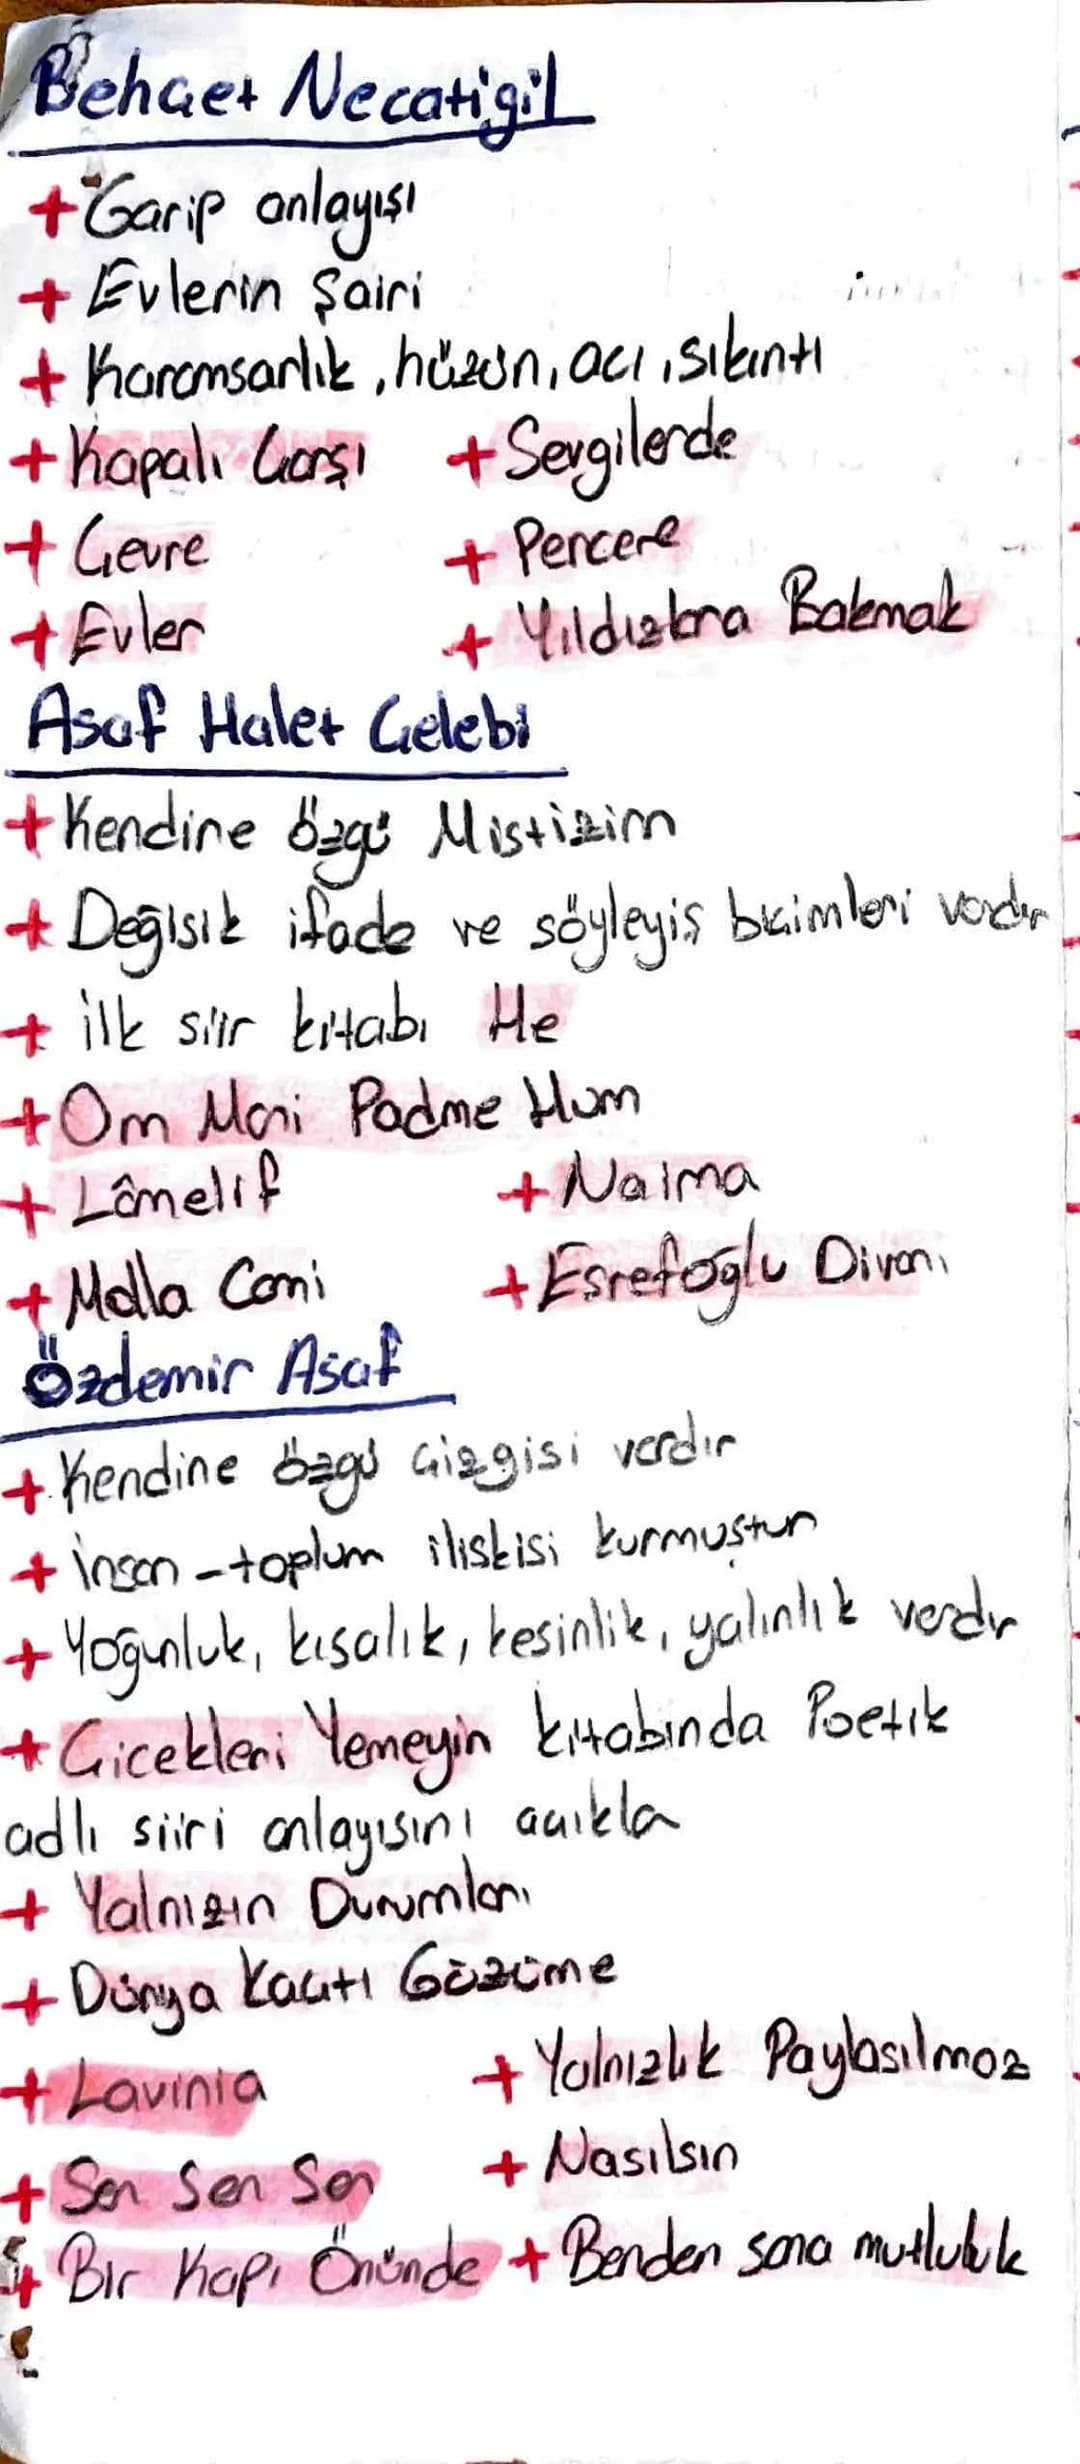 Behçet Necatigil
+ Garip anlayışı
+ Evlerin şairi
+ Karamsarlık, hüzün, acı, sıkıntı
+ Kapalı Çarşı + Sevgilerde
+ Çevre + Percere
+ Evler + Yıldızlara Bakmak
Asaf Halet Çelebi
+ Kendine özgü Mistizim
+ Değişik ifade ve söyleyiş biçimleri vardır
+ ilk şiir kitabı He
+ Om Mani Padme Hum
+ Lâmelif + Naima
+ Molla Cami + Eşrefoğlu Divanı
Özdemir Asaf
+ Kendine özgü çizgisi vardır
+ İnsan - toplum ilişkisi kurmuştur
+ Yoğunluk, kısalık, kesinlik, yalınlık vardır
+ Çiçekleri Yemeyin kitabında Poetik
adlı şiiri anlayışını açıkla
+ Yalnızın Durumları
+ Dünya Kaçtı Gözüme
+ Lavinia + Yalnızlık Paylaşılmaz
+ Sen Sen Sen + Nasılsın
+ Bir Kapı Önünde + Benden sana mutluluk